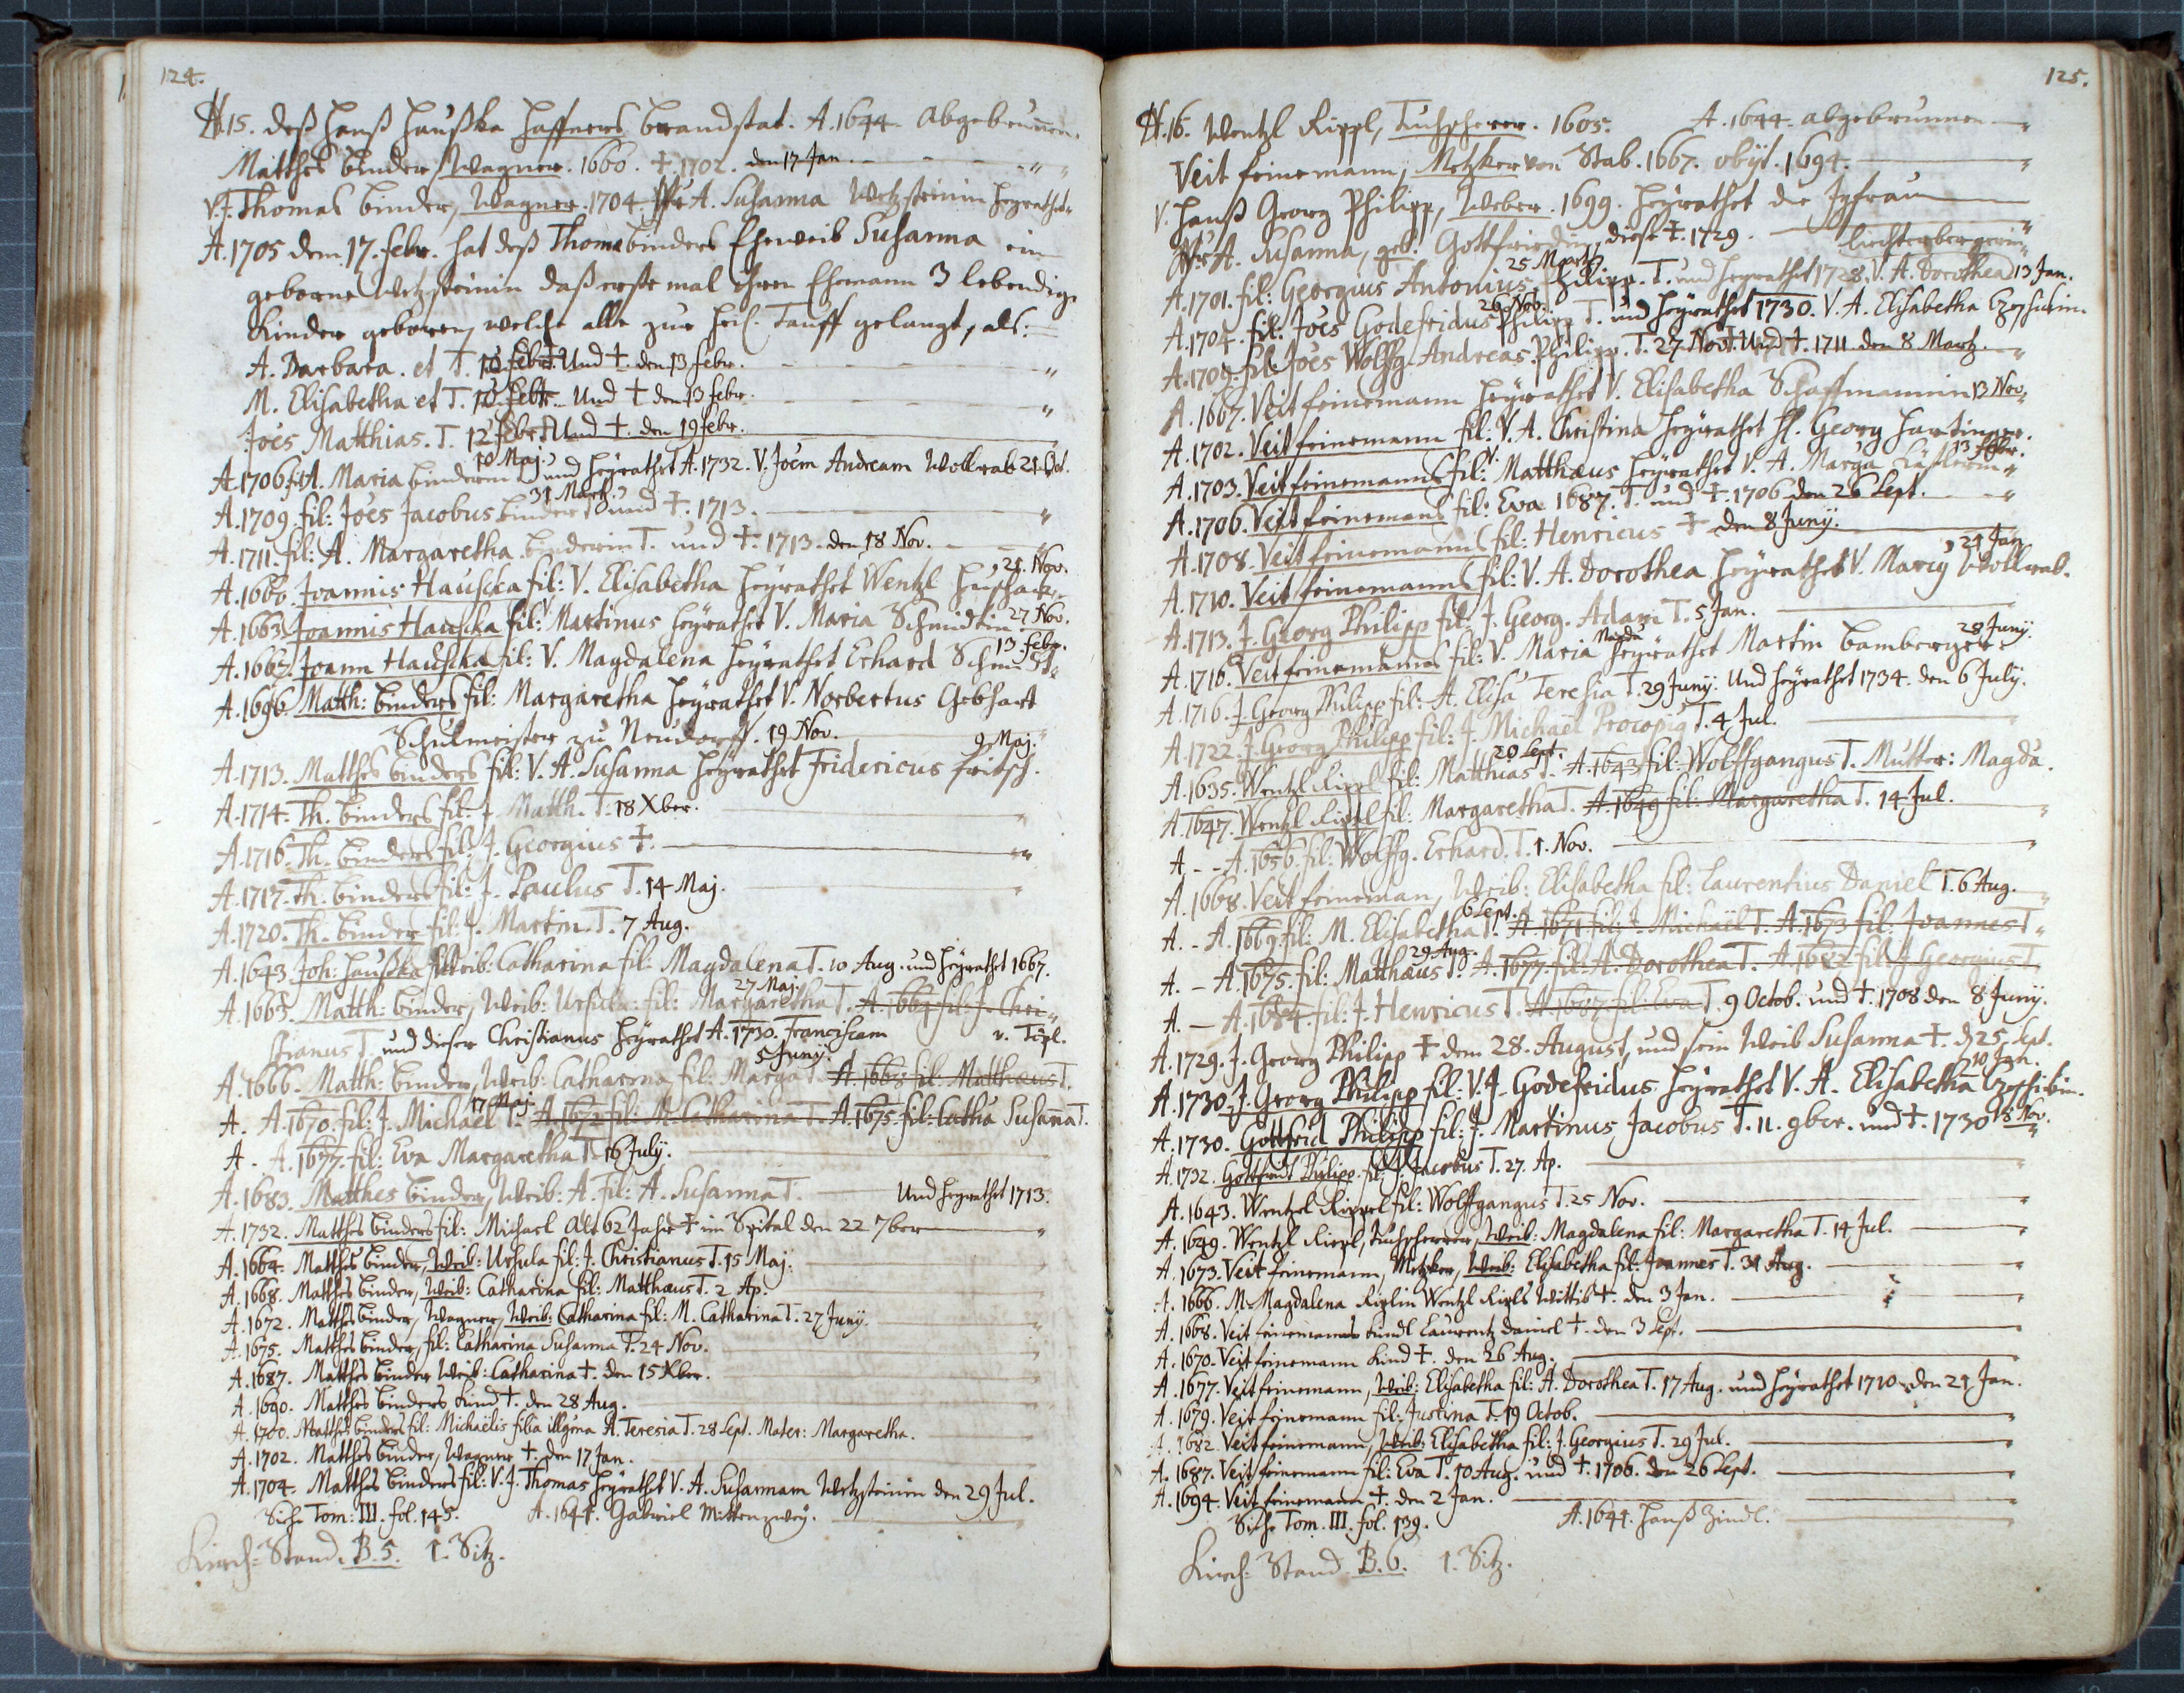 124.
N.15. deß Hanß Haußka Haffners brandstat. A.1644. abgebrunnen.
Matthes binder, Wagner. 1660. †. 1702. den 17 Jan.
V.J. Thomas binder, Wagner. 1704. A. Susanna Wetzsteinin heyrathet
A.1705 dem 17. febr. hat deß Thomæ binders Eheweib Susanna ein
geborne Wetzsteinin daß erste mal ihren Ehemann 3 lebendige
Kinder geboren, welche alle zur heil. Tauff gelangt, als:
A. Barbara. et T. febr. Und †. den 13 febr.
M. Elisabetha et T. febr. Und † den 13 febr.
Joës Matthias. T. 12 febr. Und †. den 19 febr.
A.1706 fil: A. Maria binderin 10 Maj. und heyrathet A.1732. V. Joëm Andream Wollrab 21. Oct.
A.1709. fil: Joës Jacobus binder 31 Martz. und †. 1713.
A.1711. fil: A. Margaretha binderin T. und †. 1713. den 18 Nov.
A.1660. Joannis Hauscka fil: V. Elisabetha heyrathet Wentzl 21. Nov.
A.1663. Joannis Hauscka fil: V. Martinus heyrathet V. Maria Schmidtin 27 Nov.
A.1667. Joann Hauscka fil: V. Magdalena heyrathet Erhard Schmidt 13 febr.
A.1696. Matth: binders fil: Margaretha heyrathet V. Norbertus Gebhart
Schulmeister zu Neudorff. 19 Nov.
A.1713. Matthes binders fil: V. A. Susanna heyrathet Fridericus fritsch. 9 Maj.
A.1714. Th. binders fil: J. Matth. T. 18 Xber.
A.1716. Th. binders fil: J. Georgius †.
A.1717. Th. binders fil: J. Paulus T. 14 Maj.
A.1720. Th. binder fil: J. Martin. T. 7 Aug.
A.1643. Joh: Haußka Weib: Catharina fil: Magdalena T. 10 Aug. und heyrathet 1667.
A.1663. Matth: binder, Weib: Ursula: fil: Margaretha T. 27 Maj. A.1664 fil: J. Chri-
stianus T. und dieser Christianus heyrathet A.1730. Franciscam v. Tipl. 5 Junÿ.
A.1666. Matth: binder, Weib: Catharina fil: Marga T. A.1668 fil: Matthæus T.
A. A.1670. fil: J. Michaël T. 17 Maj A.1672 fil: M. Catharina T. A.1675. fil: Catha Susaña T.
A. - A.1677. fil: Eva Margaretha T. 16 July.
A.1683. Matthes binder, Weib: A. fil: A. Susanna T. Und heyrathet 1713.
A.1732. Matthes binders fil: Michael alt 62 Jahr † im Spital den 22 7ber
A.1664. Matthes binder, Weib: Ursula fil: J. Christianus T. 15 Maj.
A.1668. Matthes binder, Weib: Catharina fil: Matthæus T. 2 Ap.
A.1672. Matthes binder, Wagner, Weib: Catharina fil: M. Catharina T. 27 Junÿ.
A.1675. Matthes binder, fil: Catharina Susanna T. 24 Nov.
A.1687. Matthes binder Weib: Catharina †. den 15 Xber.
A.1690. Matthes binders kind †. den 28 Aug.
A.1700. Matthes binders fil: Michaëlis filia illgma A. Teresia T. 28 Sept. Mater: Margaretha.
A.1702. Matthes binder, Wagner †. den 17 Jan.
A.1704. Matthes binders fil: V. J. Thomas heyrathet V. A. Susannam Wetzsteinin den 29 Jul.
Siehe Tom: III. fol. 145. A.1644. Gabriel Mittenzweÿ.
Kirch-Stand. B.5. 1. Sitz.
125.
N.16. Wentzl Rippl, Tuchscherer. 1605. A.1644. abgebrunnen
Veit feinemann, Metzker von Stab. 1667. obijt. 1694.
V. Hanß Georg Philipp, Weber. 1699. heyrathet die Jgfrau
A. Susanna, geb. Gottfriedin, diese †. 1729.
A.1701. fil: Georgius Antonius 25 Martz Philipp. T. und heyrathet 1728. V. A. Dorothea Liechtenbergerin 13 Jan.
A.1704. fil: Joës Godefridus 26 Nov. Philipp T. und heyrathet 1730. V. A. Elisabetha
A.1709. fil: Joës Wolffg. Andreas. Philipp. T. 27 Nov. Und †. 1711. den 8 Martz.
A.1667. Veit feinemann heyrathet V. Elisabetha Schaffmannin 13 Nov.
A.1702. Veit feinemann fil: V. A. Christina heyrathet H. Georg Hartinger.
A.1703. Veit feinemanns fil: V. Matthæus heyrathet V. A. Marga 13 febr.
A.1706. Veit feinemans fil: Eva 1687. T. und †. 1706 den 26 Sept.
A.1708. Veit feinemanns fil: Henricus † den 8 Junÿ.
A.1710. Veit feinemanns fil: V. A. Dorothea heyrathet V. Wollrab. 21 Jan
A.1713. J. Georg Philipp fil: J. Georg. Adam T. 5 Jan.
A.1716. Veit feinemanns fil: V. Maria Magda heyrathet Martin bamberger 28 Junÿ.
A.1716. J. Georg Philipp fil: A. Elisa Teresia T. 29 Junÿ. Und heyrathet 1734. den 6 July.
A.1722. J. Georg Philipp fil: J. Michaël Procopiq T. 4 Jul.
A.1635. Wentzl Rippl fil: Matthias T. 20 Sept. A.1643 fil: Wolffgangus T. Mutter: Magda.
A.1647. Wentzl Rippl fil: Margaretha T. A.1649 fil: Margaretha T. 14 Jul.
A. - - A.1656. fil: Wolffg. Erhard. T. 1. Nov.
A.1668. Veit feineman, Weib: Elisabetha fil: Laurentius Daniel T. 6 Aug.
A. - A.1669. fil: M. Elisabetha T. 6 Sept. A.1671 fil: J. Michaël T. A.1673 fil: Joannes T
A. - A.1675. fil: Matthæus T. 29 Aug. A.1677. fil: A. Dorothea T. A.1682 fil: J. Georgius T
A. - A.1684. fil: J. Henricus T. A.1687 fil: Eva T. 9 Octob. und †. 1708 den 8 Junÿ.
A.1729. J. Georg Philipp † dem 28. August, und sein Weib Susanna †. d 25. Sept.
A.1730. J. Georg Philipp fil: V. J. Godefridus heyrathet V. A. Elisabetha 10 Jan.
A.1730. Gottfrid Philipp fil: J. Martinus Jacobus T. 11. 9ber. und †. 1730 18 Nov.
A.1732. Gottfridt Philipp. fil: J. Jacobus T. 27. Ap.
A.1643. Wentzl Rippel fil: Wolffgangus T. 25 Nov.
A.1649. Wentzl Ripl, Tuchscherer, Weib: Magdalena fil: Margaretha T. 14 Jul.
A.1673. Veit feinemann, Metzker, Weib: Elisabetha fil: Joannes T. 31 Aug.
A.1666. M. Magdalena Riplin Wentzl Ripls Wittib †. den 3 Jan.
A.1668. Veit feinemanns kindl Laurentz Daniel †. den 3 Sept.
A.1670. Veit feinemann kind †. den 26 Aug.
A.1677. Veit feinemann, Weib: Elisabetha fil: A. Dorothea T. 17 Aug. und heyrathet 1710 den 21 Jan.
A.1679. Veit feinemann fil: Justina T. 19 Octob.
A.1682. Veit feinemann, Weib: Elisabetha fil: J. Georgius T. 29 Jul.
A.1687. Veit feinemann fil: Eva T. 10 Aug. und †. 1706. den 26 Sept.
A.1694. Veit feinemann †. den 2 Jan.
Siehe Tom. III. fol. 139. A.1644. Hanß Zindl.
Kirch-Stand. B.6. 1. Sitz.